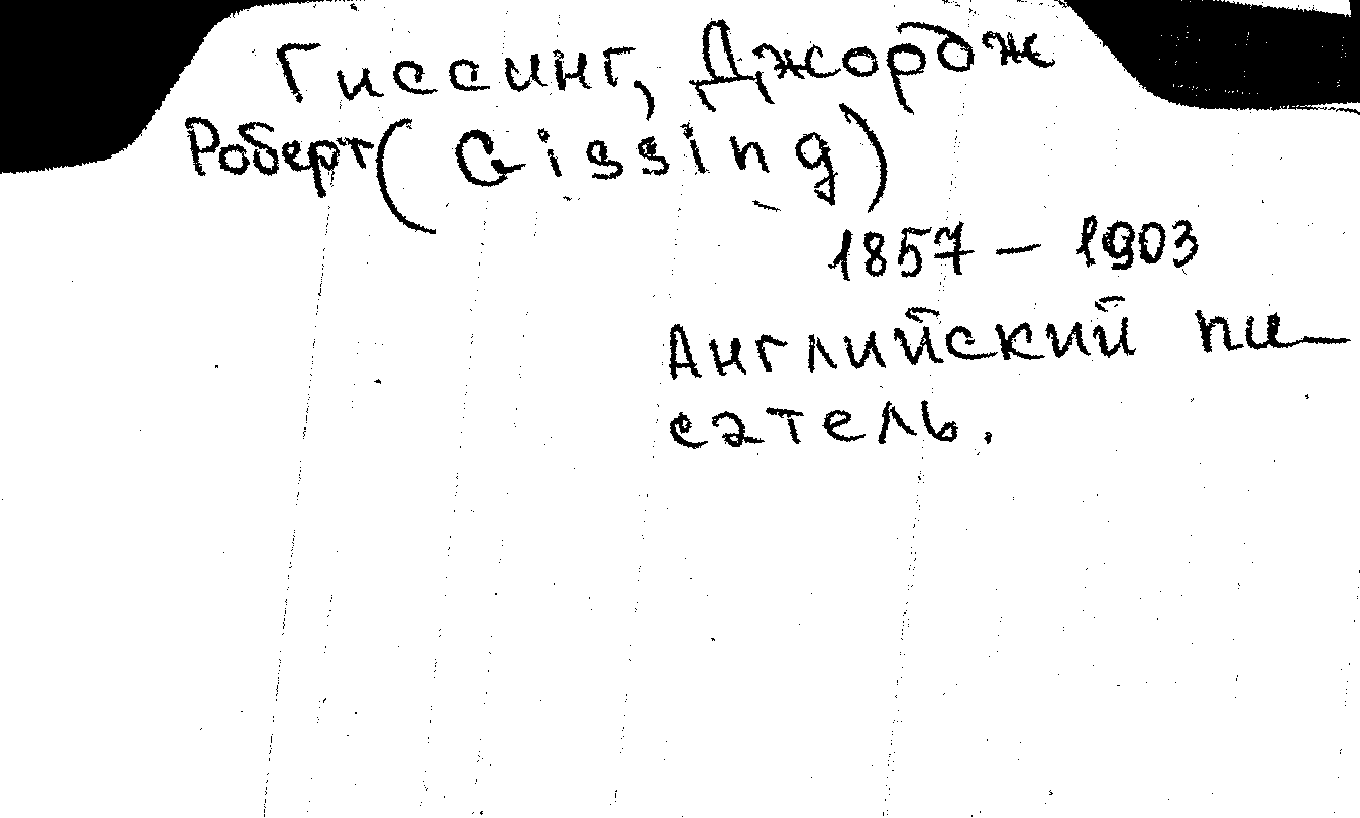 Гиссинг, Джордж
Роберт (Gissing)
1857 – 1903
Английский пи–
сатель.